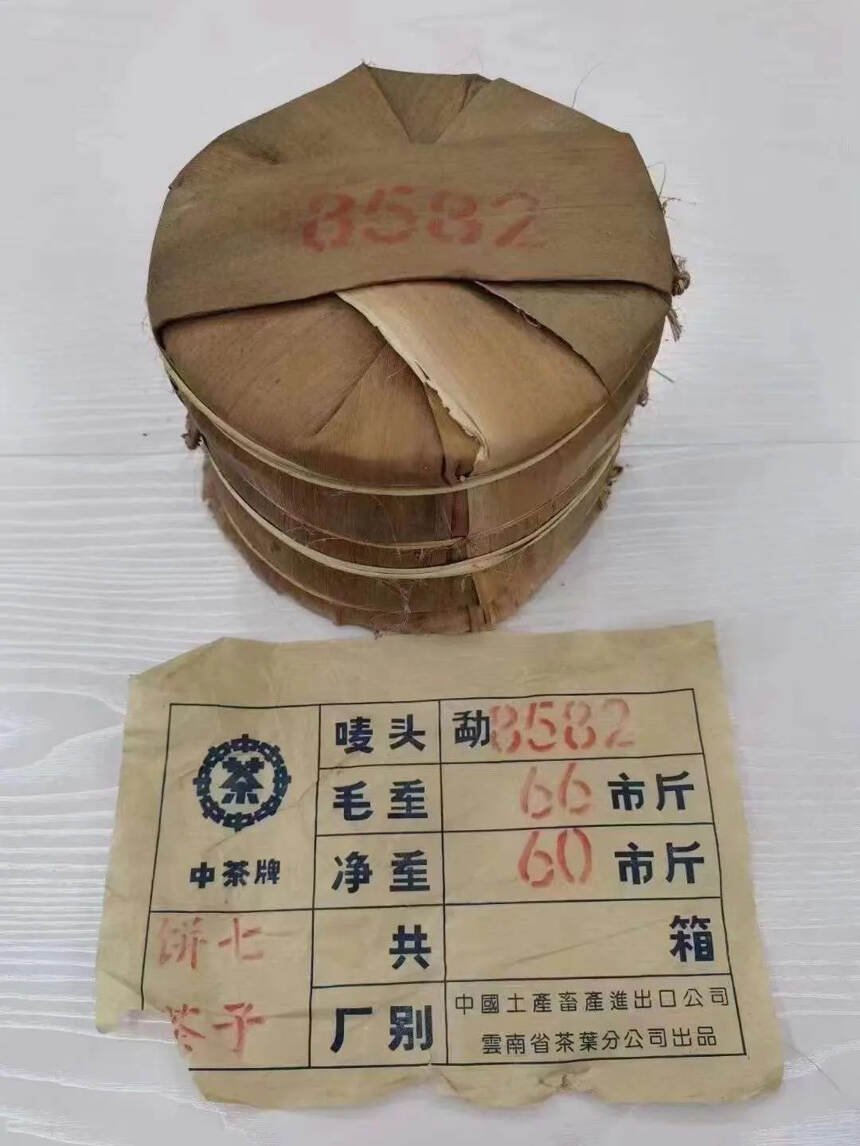 8582
茶
中茶牌
唛头 勐8582
毛重 66市斤
净重 60市斤
饼七 共 箱
茶子 厂别 中國土產畜產進出口公司
雲南省茶葉分公司出品